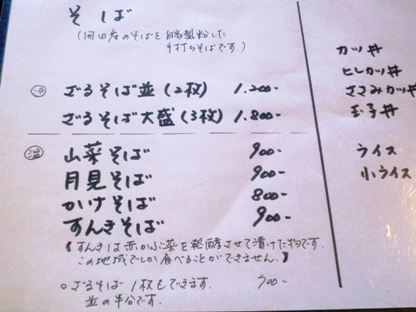 そば
(開田産のそばを自家製粉した
手打ちそばです。)
冷 ざるそば並(2枚) 1.200-
ざるそば大盛(3枚) 1.800-
温 山菜そば 900-
月見そば 900-
かけそば 800-
すんきそば 900-
(すんきは赤かぶ菜を発酵させて漬けた物です。
この地域でしか食べることができません。)
○ざるそば1枚もできます。 700-
並の半分です。
カツ丼
ヒレカツ丼
ささみカツ
玉子丼
ライス
小ライス